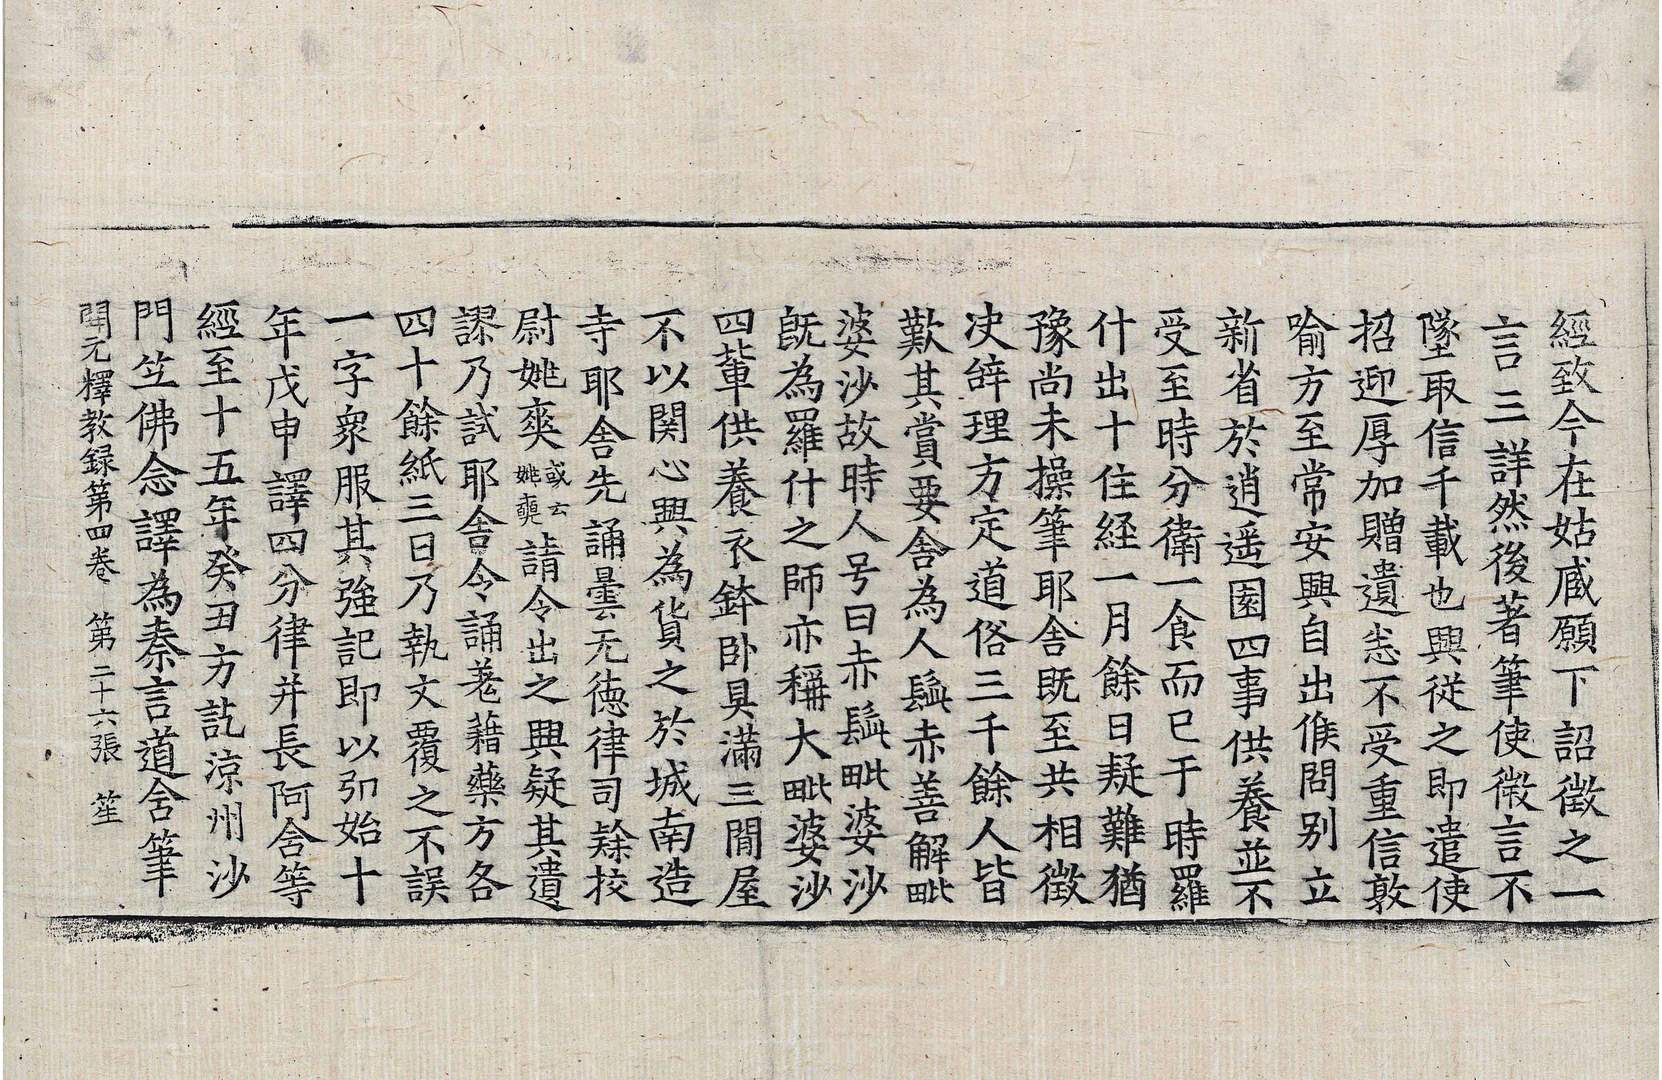 經致今在姑臧願下詔徵之一
言三詳然後著筆使微言不
墜取信千載也興從之即遣使
招迎厚加贈遺悉不受重信敦
喻方至常安興自出候問别立
新省於逍遥園四事供養並不
受至時分衛一食而已于時羅
什出十住経一月餘日疑難猶
豫尚未操筆耶舍既至共相徵
决辝理方定道俗三千餘人皆
歎其賞要舍為人髭赤善解毗
婆沙故時人号曰赤髭毗婆沙
既為羅什之師亦稱大毗婆沙
四輩供養衣鉢卧具滿三間屋
不以関心興為貨之於城南造
寺耶舍先誦曇无徳律司隸挍
尉姚爽或云姚奭請令出之興疑其遺
謬乃試耶舍令誦羌藉藥方各
四十餘紙三日乃執文覆之不誤
一字衆服其強記即以弘始十
年戊申譯四分律并長阿含等
經至十五年癸丑方訖涼州沙
門竺佛念譯為秦言道含筆
開元釋教録第四卷　第二十六張　笙